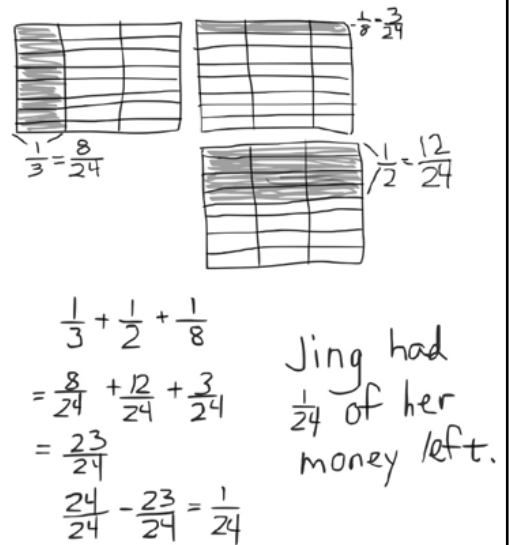 1/8 = 3/24
1/3 = 8/24
1/2 = 12/24
1/3 + 1/2 + 1/8
= 8/24 + 12/24 + 3/24
= 23/24
24/24 - 23/24 = 1/24
Jing had
1/24 of her
money left.